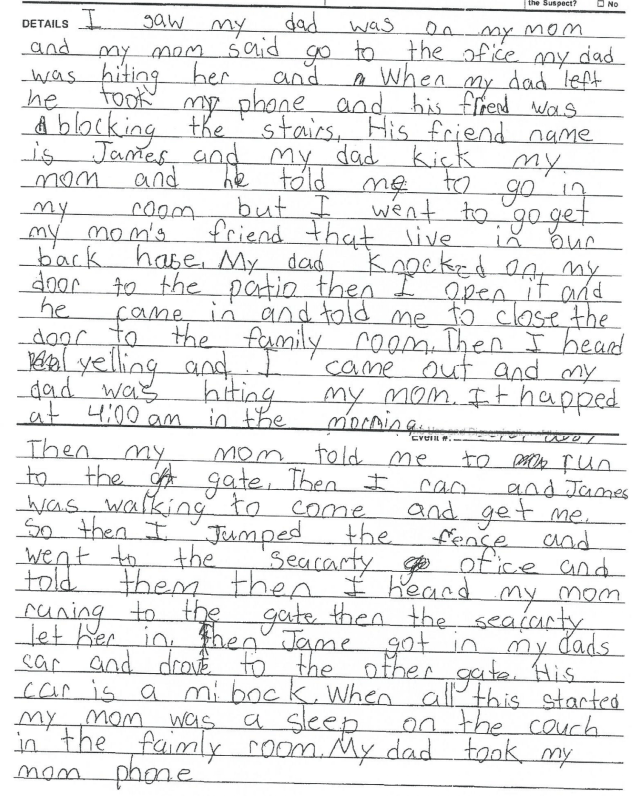 the Suspect? ☐ No
DETAILS I saw my dad was on my mom
and my mom said go to the ofice my dad
was hiting her and When my dad left
he took my phone and his friend was
blocking the stairs, His friend name
is James and my dad kick my
mom and he told me to go in
my room but I went to go get
my mom's friend that live in our
back hase. My dad knocked on my
door to the patio then I open it and
he came in and told me to close the
door to the family room. Then I heard
yelling and I came out and my
dad was hiting my mom. It happed
at 4:00 am in the morning.
Event #:
Then my mom told me to run
to the gate. Then I ran and James
was walking to come and get me.
So then I Jumped the fence and
went to the seacarty ofice and
told them then I heard my mom
runing to the gate then the seacarty
let her in. Then Jame got in my dads
car and drove to the other gate. His
car is a mi bock. When all this started
my mom was a sleep on the couch
in the faimly room. My dad took my
mom phone